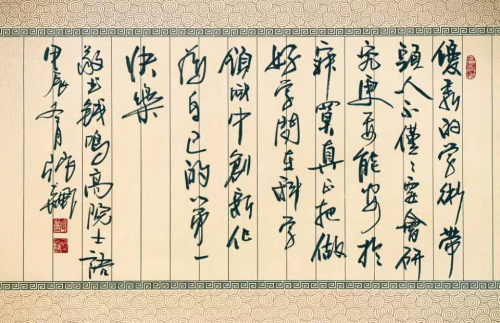 優秀的学術帶
頭人不僅〻需會研
究更要能安於
寂寞真正把做
好学問在科学
領域中創新作
為自己的第一
快樂
敬书錢鳴高院士語
甲辰冬月